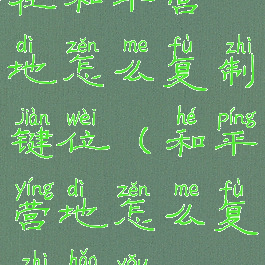 dì zěn me fù zhì
地怎么复制
jiàn wèi hé píng
键位（和平
yíng dì zěn me fù
营地怎么复